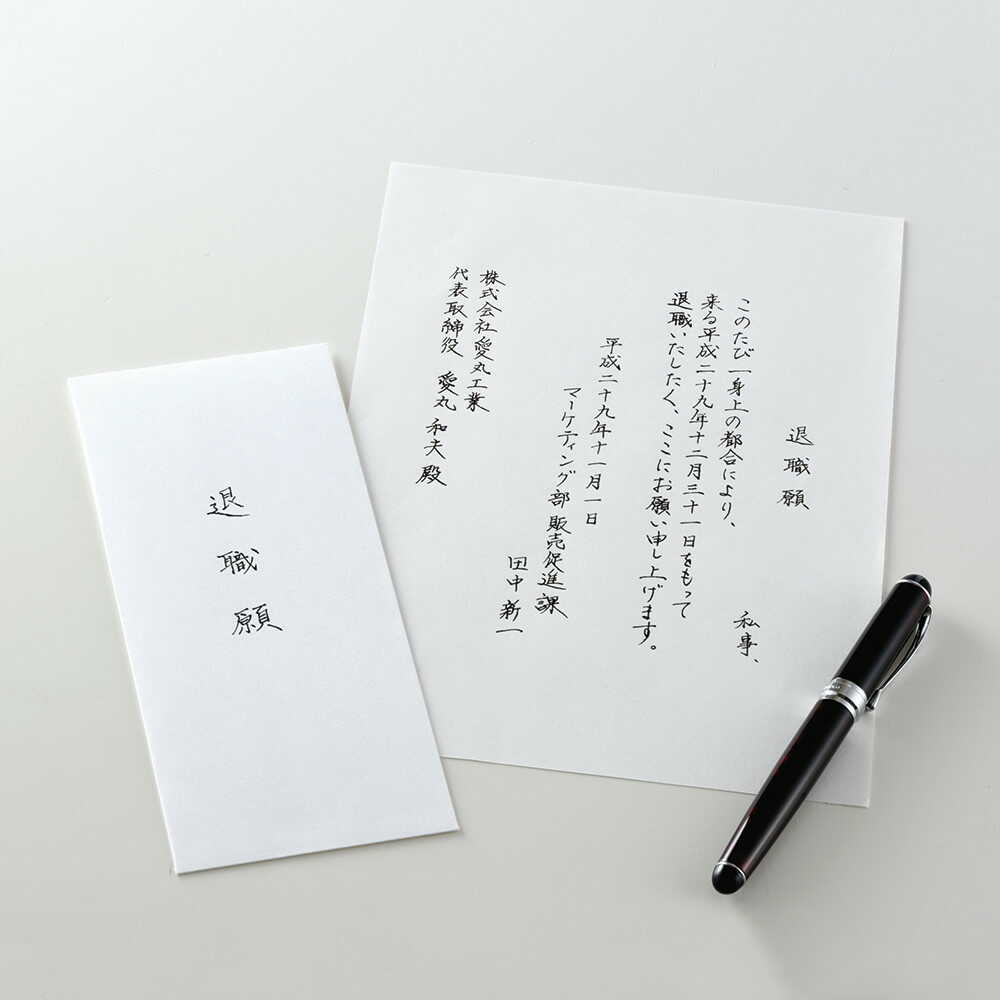 退職願
私事、
このたび一身上の都合により、
来る平成二十九年十二月三十一日をもって
退職いたしたく、ここにお願い申し上げます。
平成二十九年十一月一日
マーケティング部販売促進課
田中新一
株式会社愛丸工業
代表取締役 愛丸和夫殿
退職願